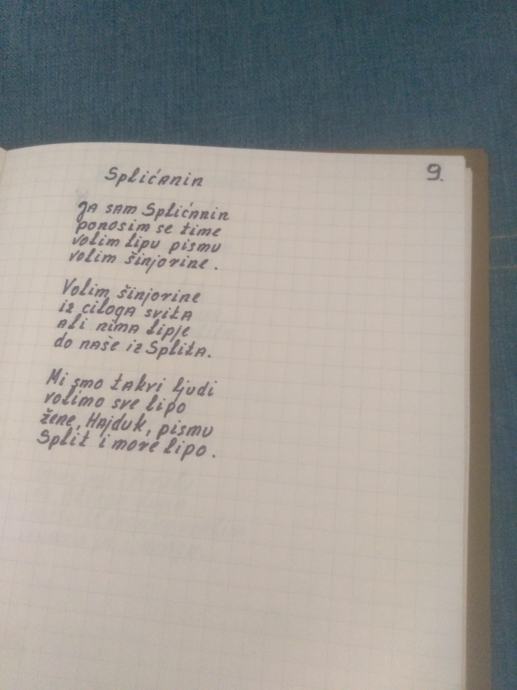 9.
Splićanin
Ja sam Splićanin
ponosim se time
volim lipu pismu
volim šinjorine.
Volim šinjorine
iz ciloga svita
ali nima lipje
do naše iz Splita.
Mi smo takvi ljudi
volimo sve lipo
žene, Hajduk, pismu
Split i more lipo.